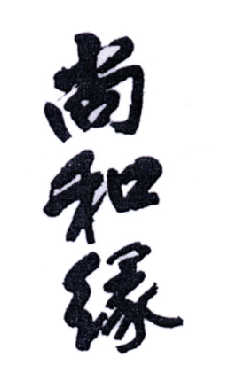 尚和缘